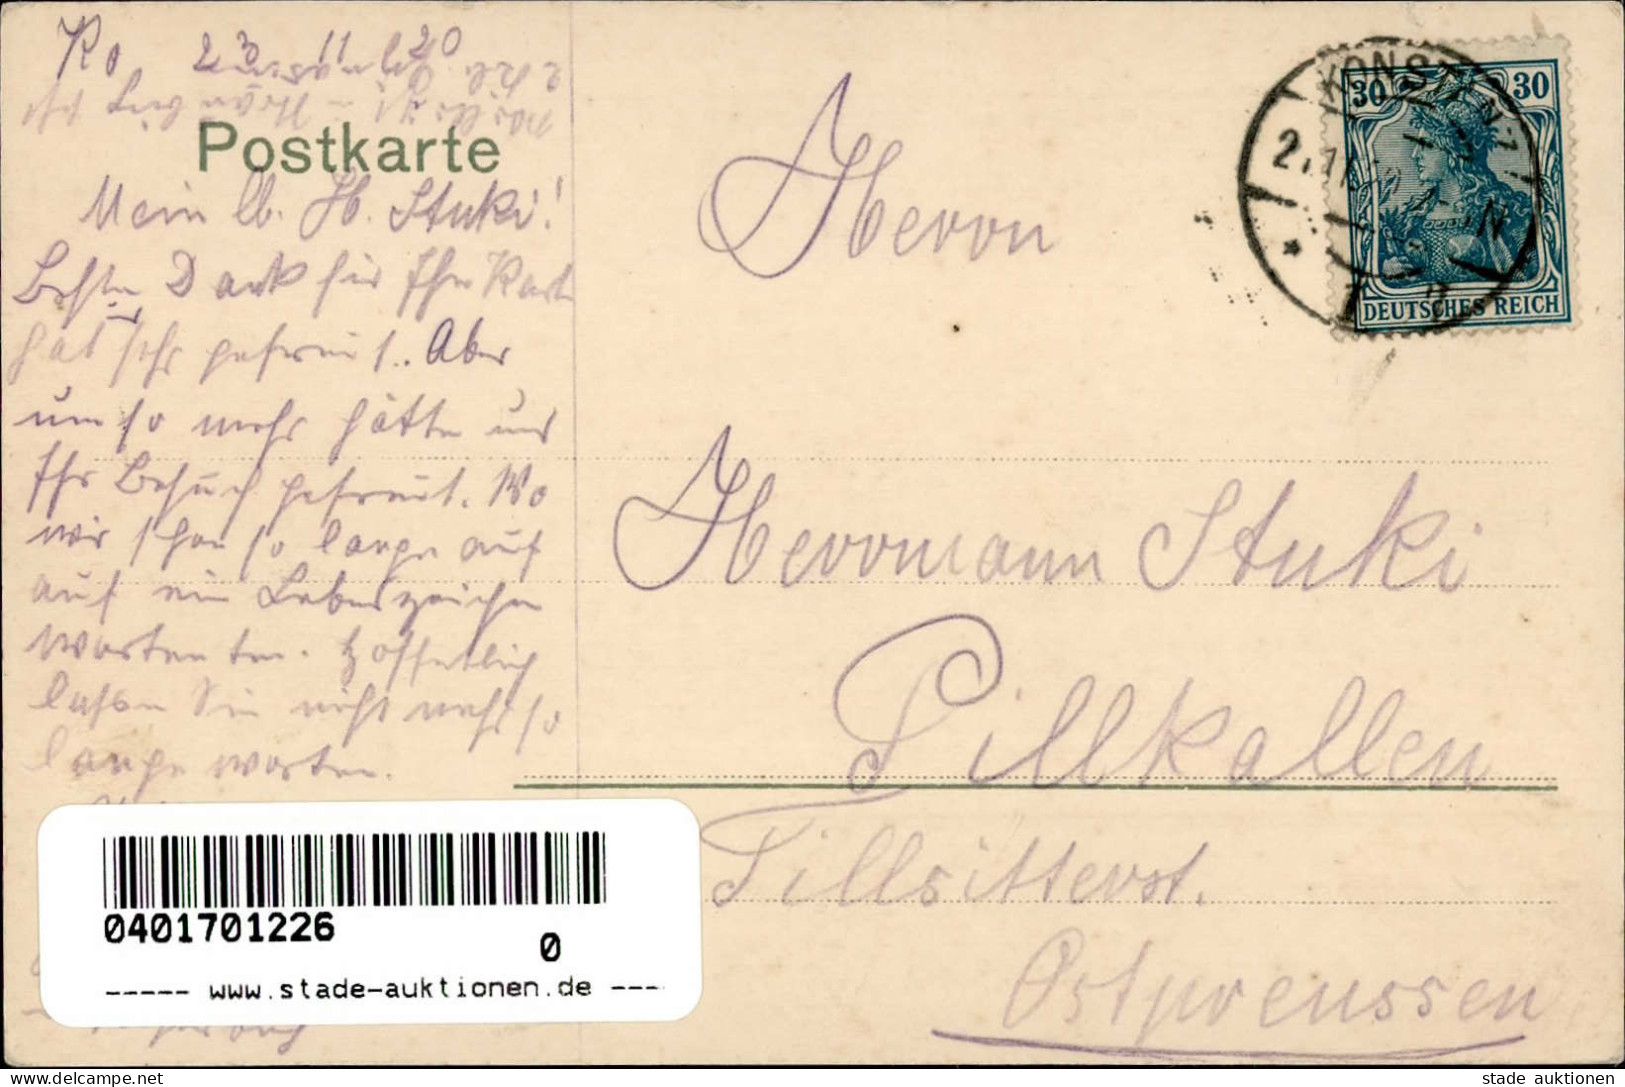 Ko, 23. 11. 20
Postkarte
Mein lb. H. Stuki!
Besten Dank für Ihre Karte
hat sehr gefreut. Aber
um so mehr hätte uns
Ihr Besuch gefreut. Wo
wir schon so lange auf
auf ein Lebenszeichen
warteten. Hoffentlich
lassen Sie nicht mehr so
lange warten.
Herrn
Herrmann Stuki
Pillkallen
Tillsitterst.
Ostpreussen
30 30
DEUTSCHES REICH
KONSTANZ
0401701226
0
----- www.stade-auktionen.de ---
www.delcampe.net
stade auktionen